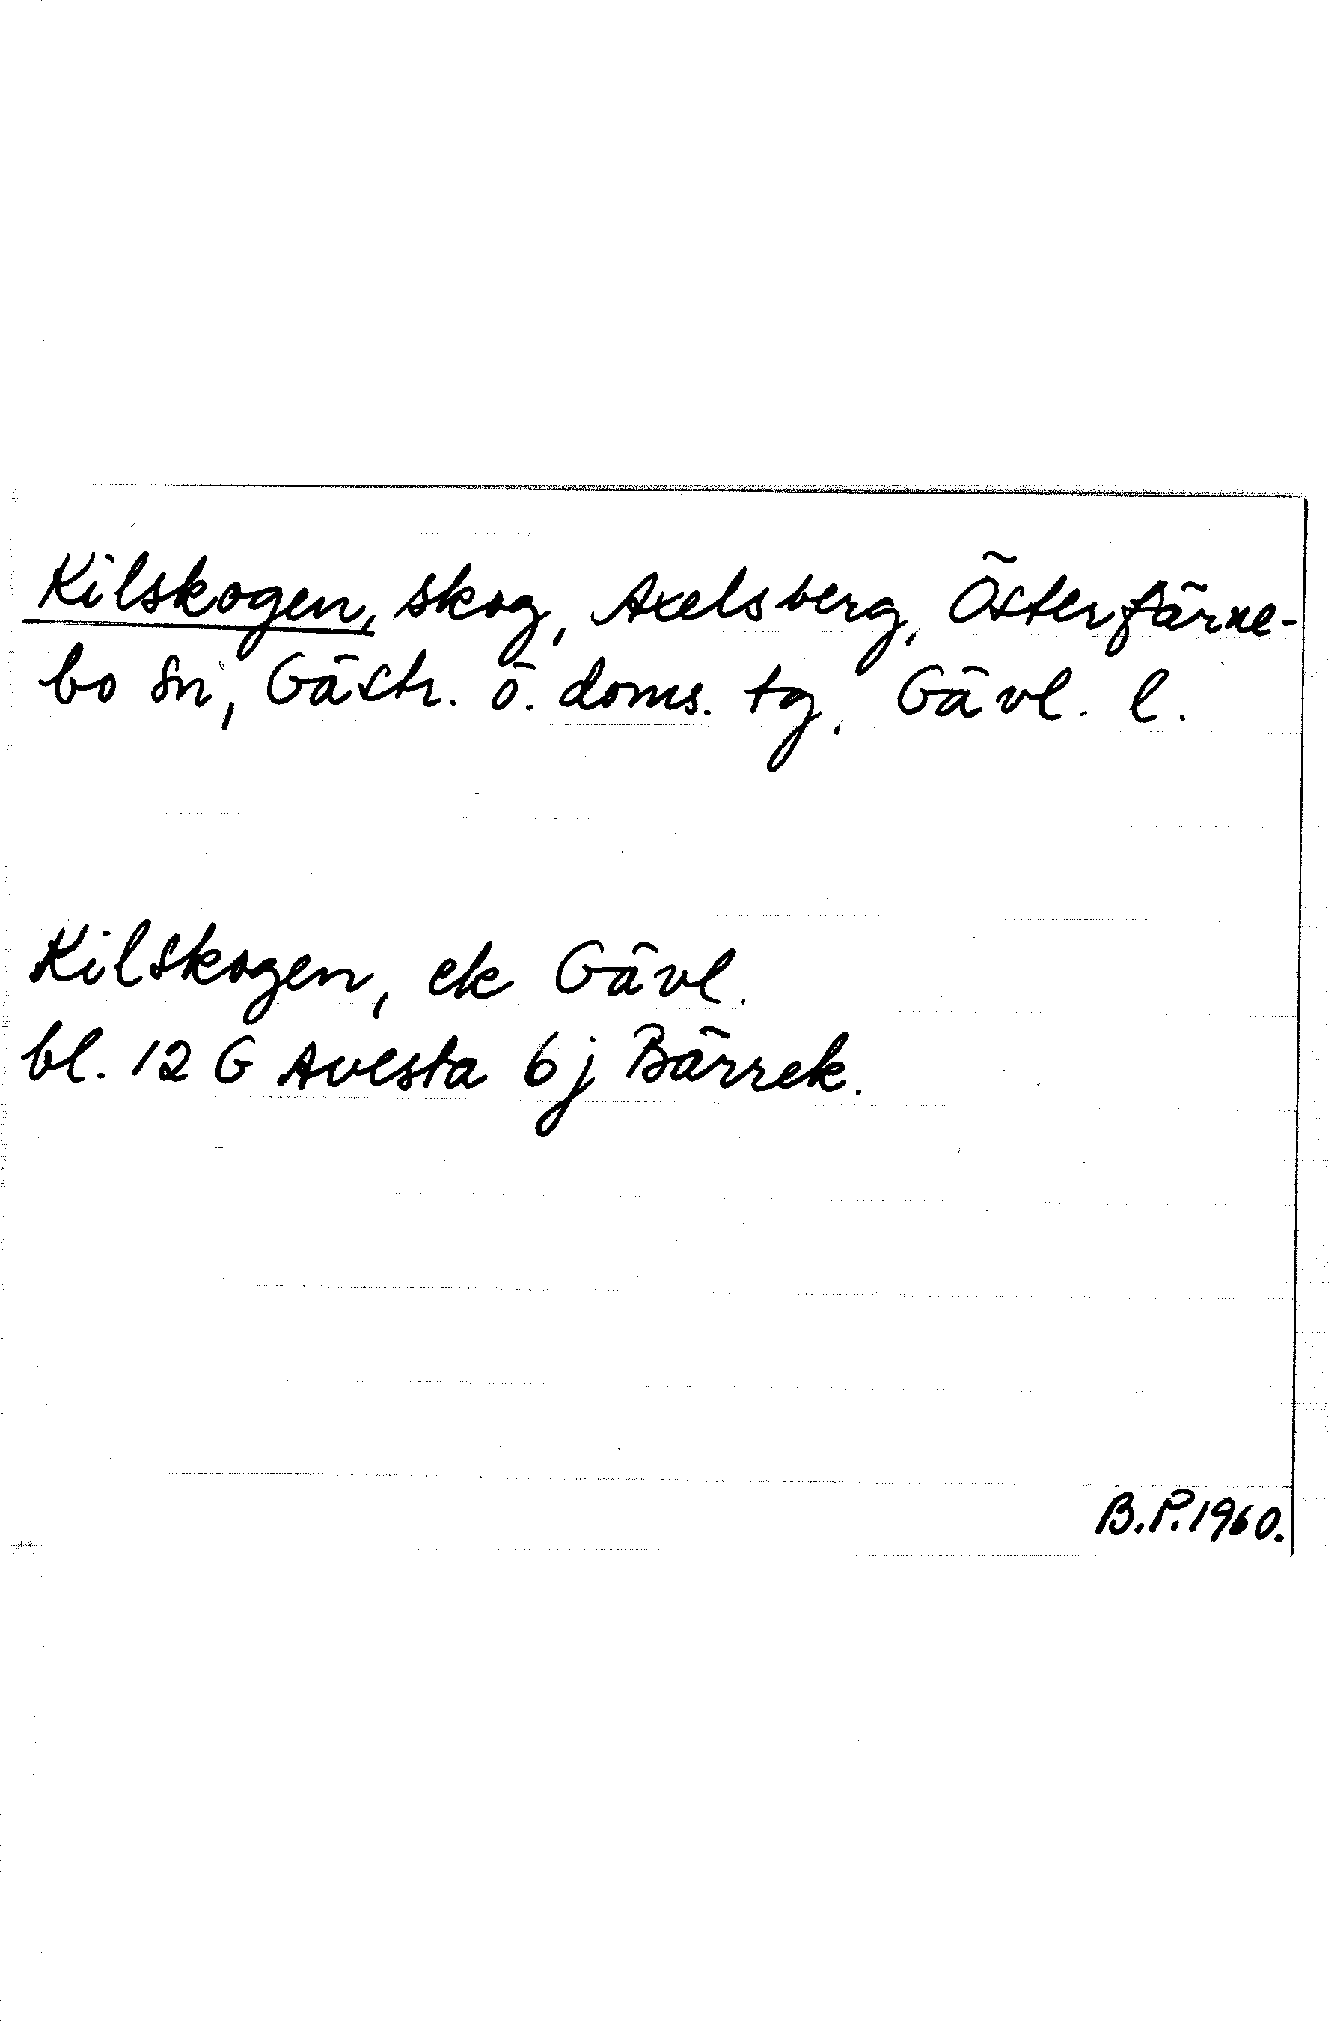 Kilskogen, skog, Axelsberg, Österfärne-
bo sn, Gästr. ö. doms. tg, Gävl. l.
Kilskogen, ek Gävl.
bl. 12 G Avesta 6 j Bärrek.
B.P. 1960.